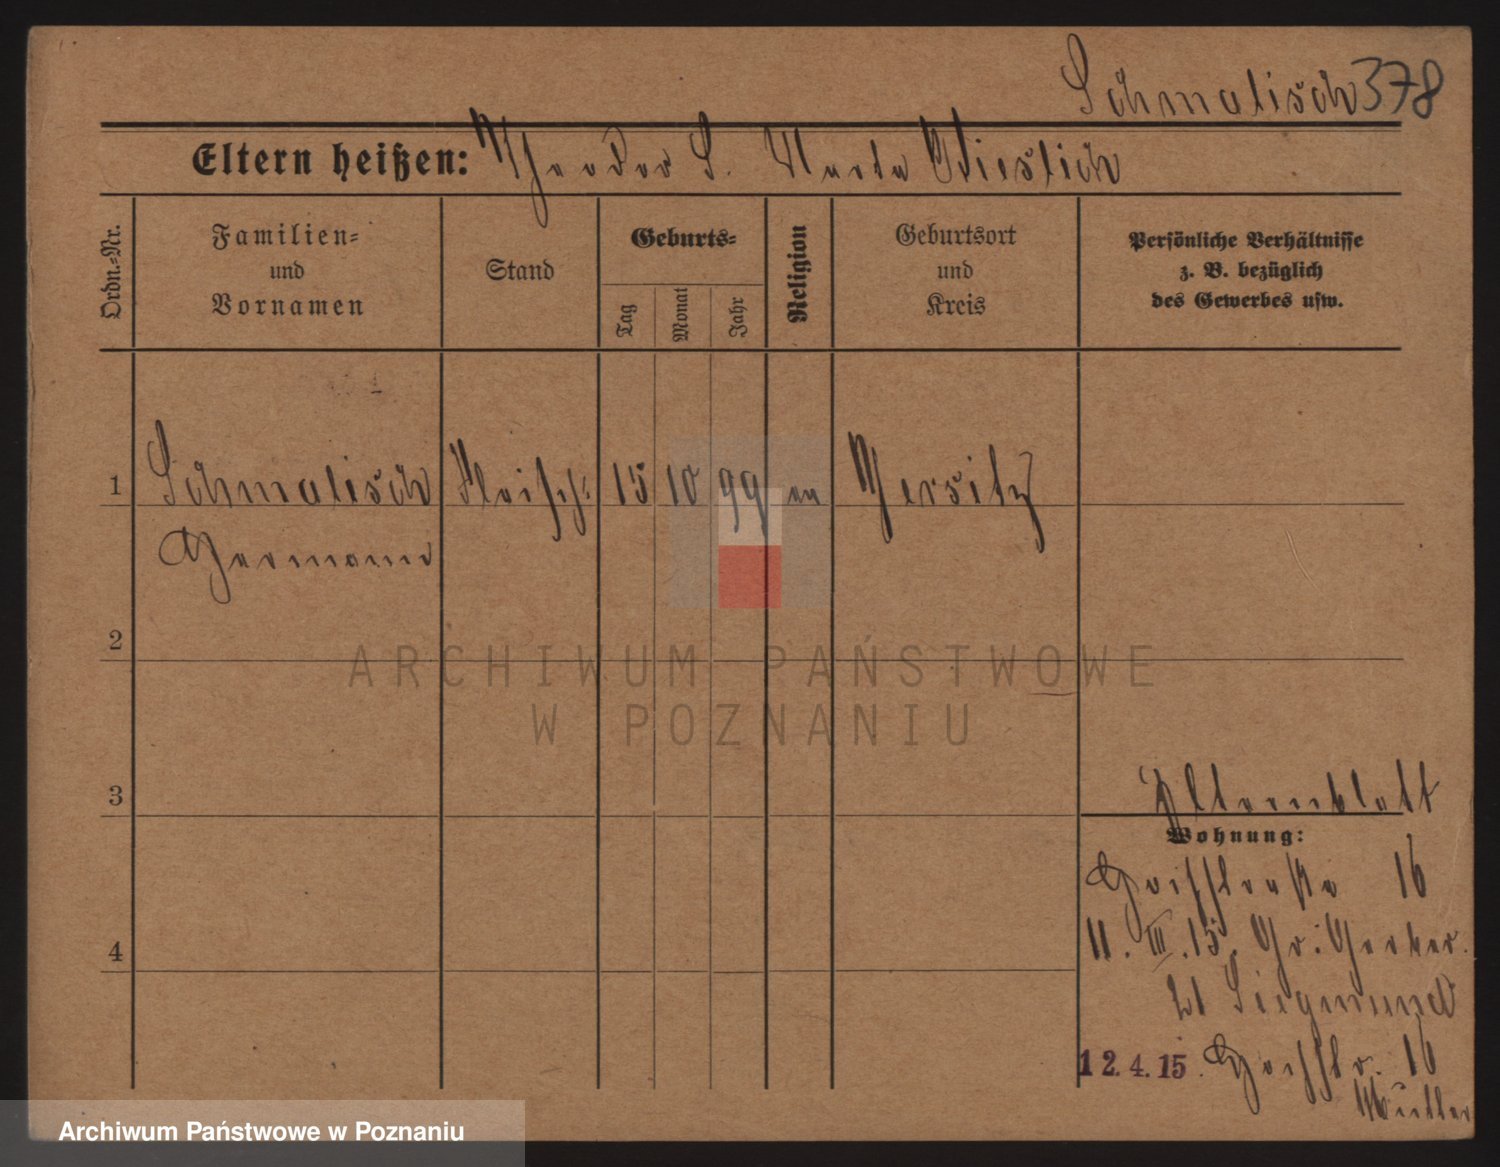 Schmalisch 378
Eltern heißen: Theodor S. Marta Wieslich
Ordn.-Nr.
Familien-
und
Vornamen
Stand
Geburts-
Tag
Monat
Jahr
Religion
Geburtsort
und
Kreis
Persönliche Verhältnisse
z. B. bezüglich
des Gewerbes usw.
1 Schmalisch Fleisch: 15 10 99 ev Jersitz
Hermann
2
3
4
Elternblatt
Wohnung:
16
11. III. 15. Gr: Gerber.
21 Siegmund
12.4.15. 16
Mutter
ARCHIWUM PAŃSTWOWE
W POZNANIU
Archiwum Państwowe w Poznaniu